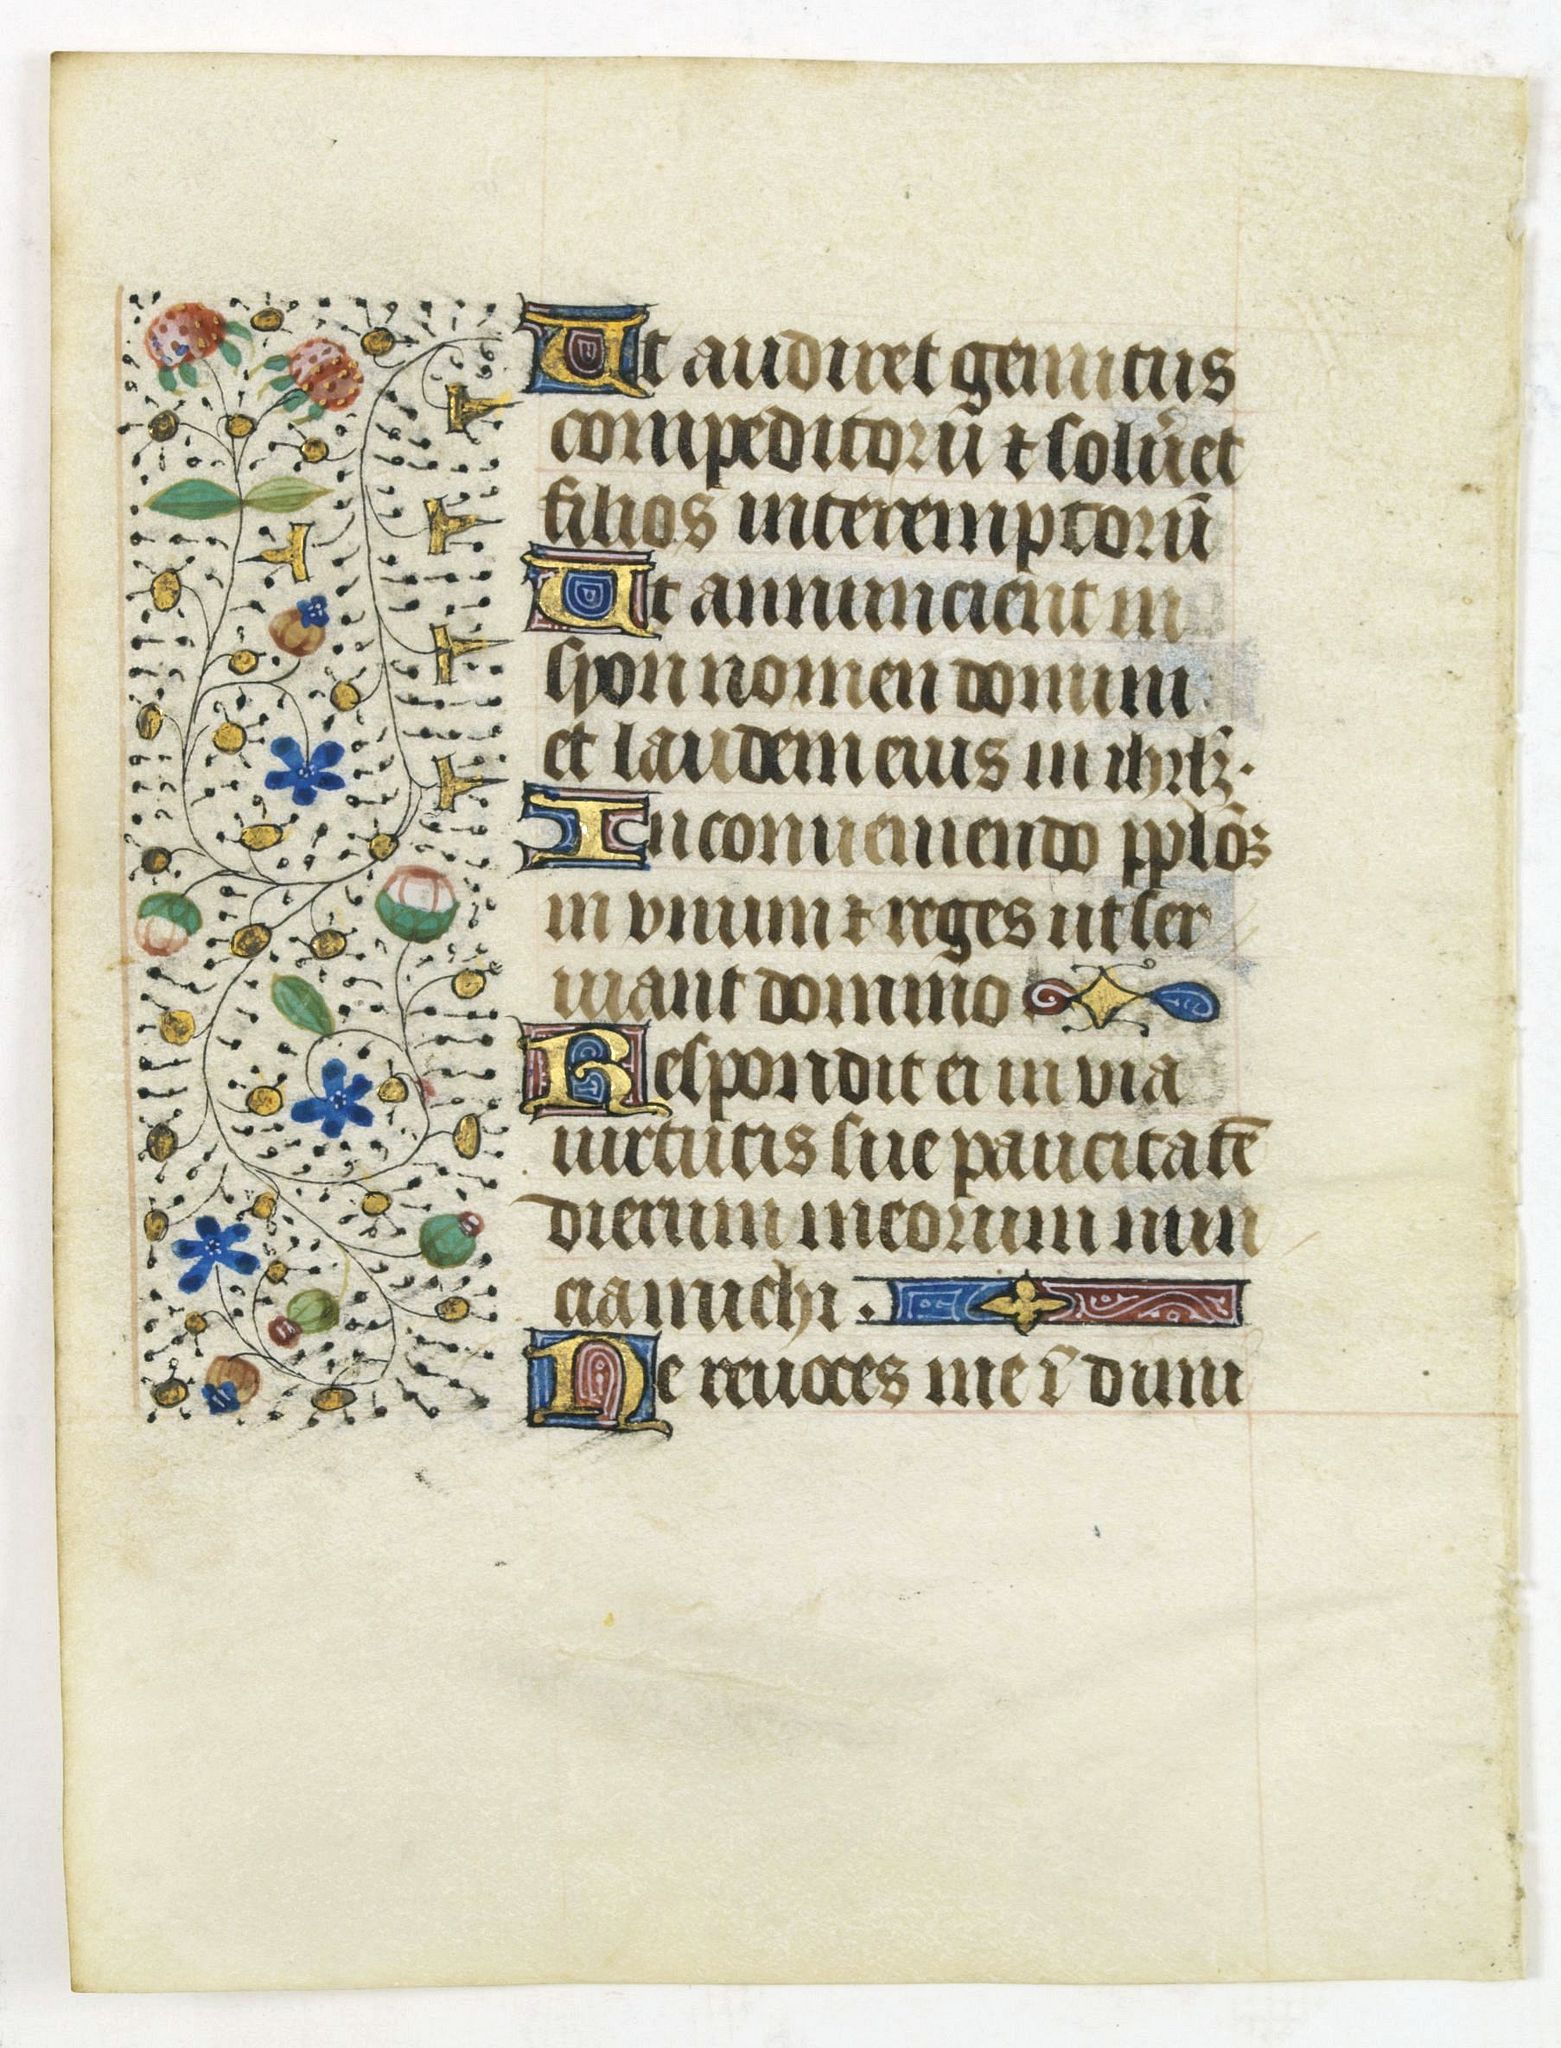 Ut audiret gemitus
compeditorū ⁊ solūet
filios interemptorū
Ut annuncient in
syon nomen domini
et laudem eius in ihrlꝫ.
In conueniendo pplōꝝ
in vnum ⁊ reges ut ser
uiant domino
Respondit ei in via
uirtutis sue paucitatē
dierum meorum nun
cia michi.
Ne reuoces me ī dimi